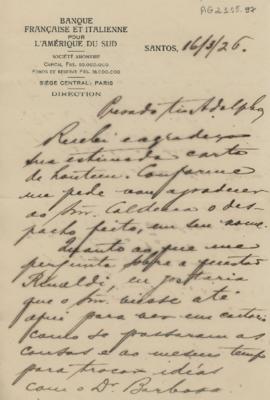 AG2155.97
BANQUE
FRANÇAISE ET ITALIENNE
POUR
L'AMÉRIQUE DU SUD
SOCIÉTÉ ANONYME
CAPITAL FRS. 50.000.000
FONDS DE RESERVE FRS.
SIÈGE CENTRAL: PARIS
DIRECTION
SANTOS, 16/3/26.
Presado tio Adolpho
Recebi e agradeço
sua estimada carta
de hontem. Conforme
me pede vou agradecer
ao Snr. Caldeira o des-
pacho feito, em seu nome.
Quanto ao que me
pergunta sobre a questão
Rinaldi, eu gostaria
que o Snr. viesse até
aqui para ver em cartorio
como se passaram as
cousas e ao mesmo tempo
para trocar idias
com o Dr. Barbosa.